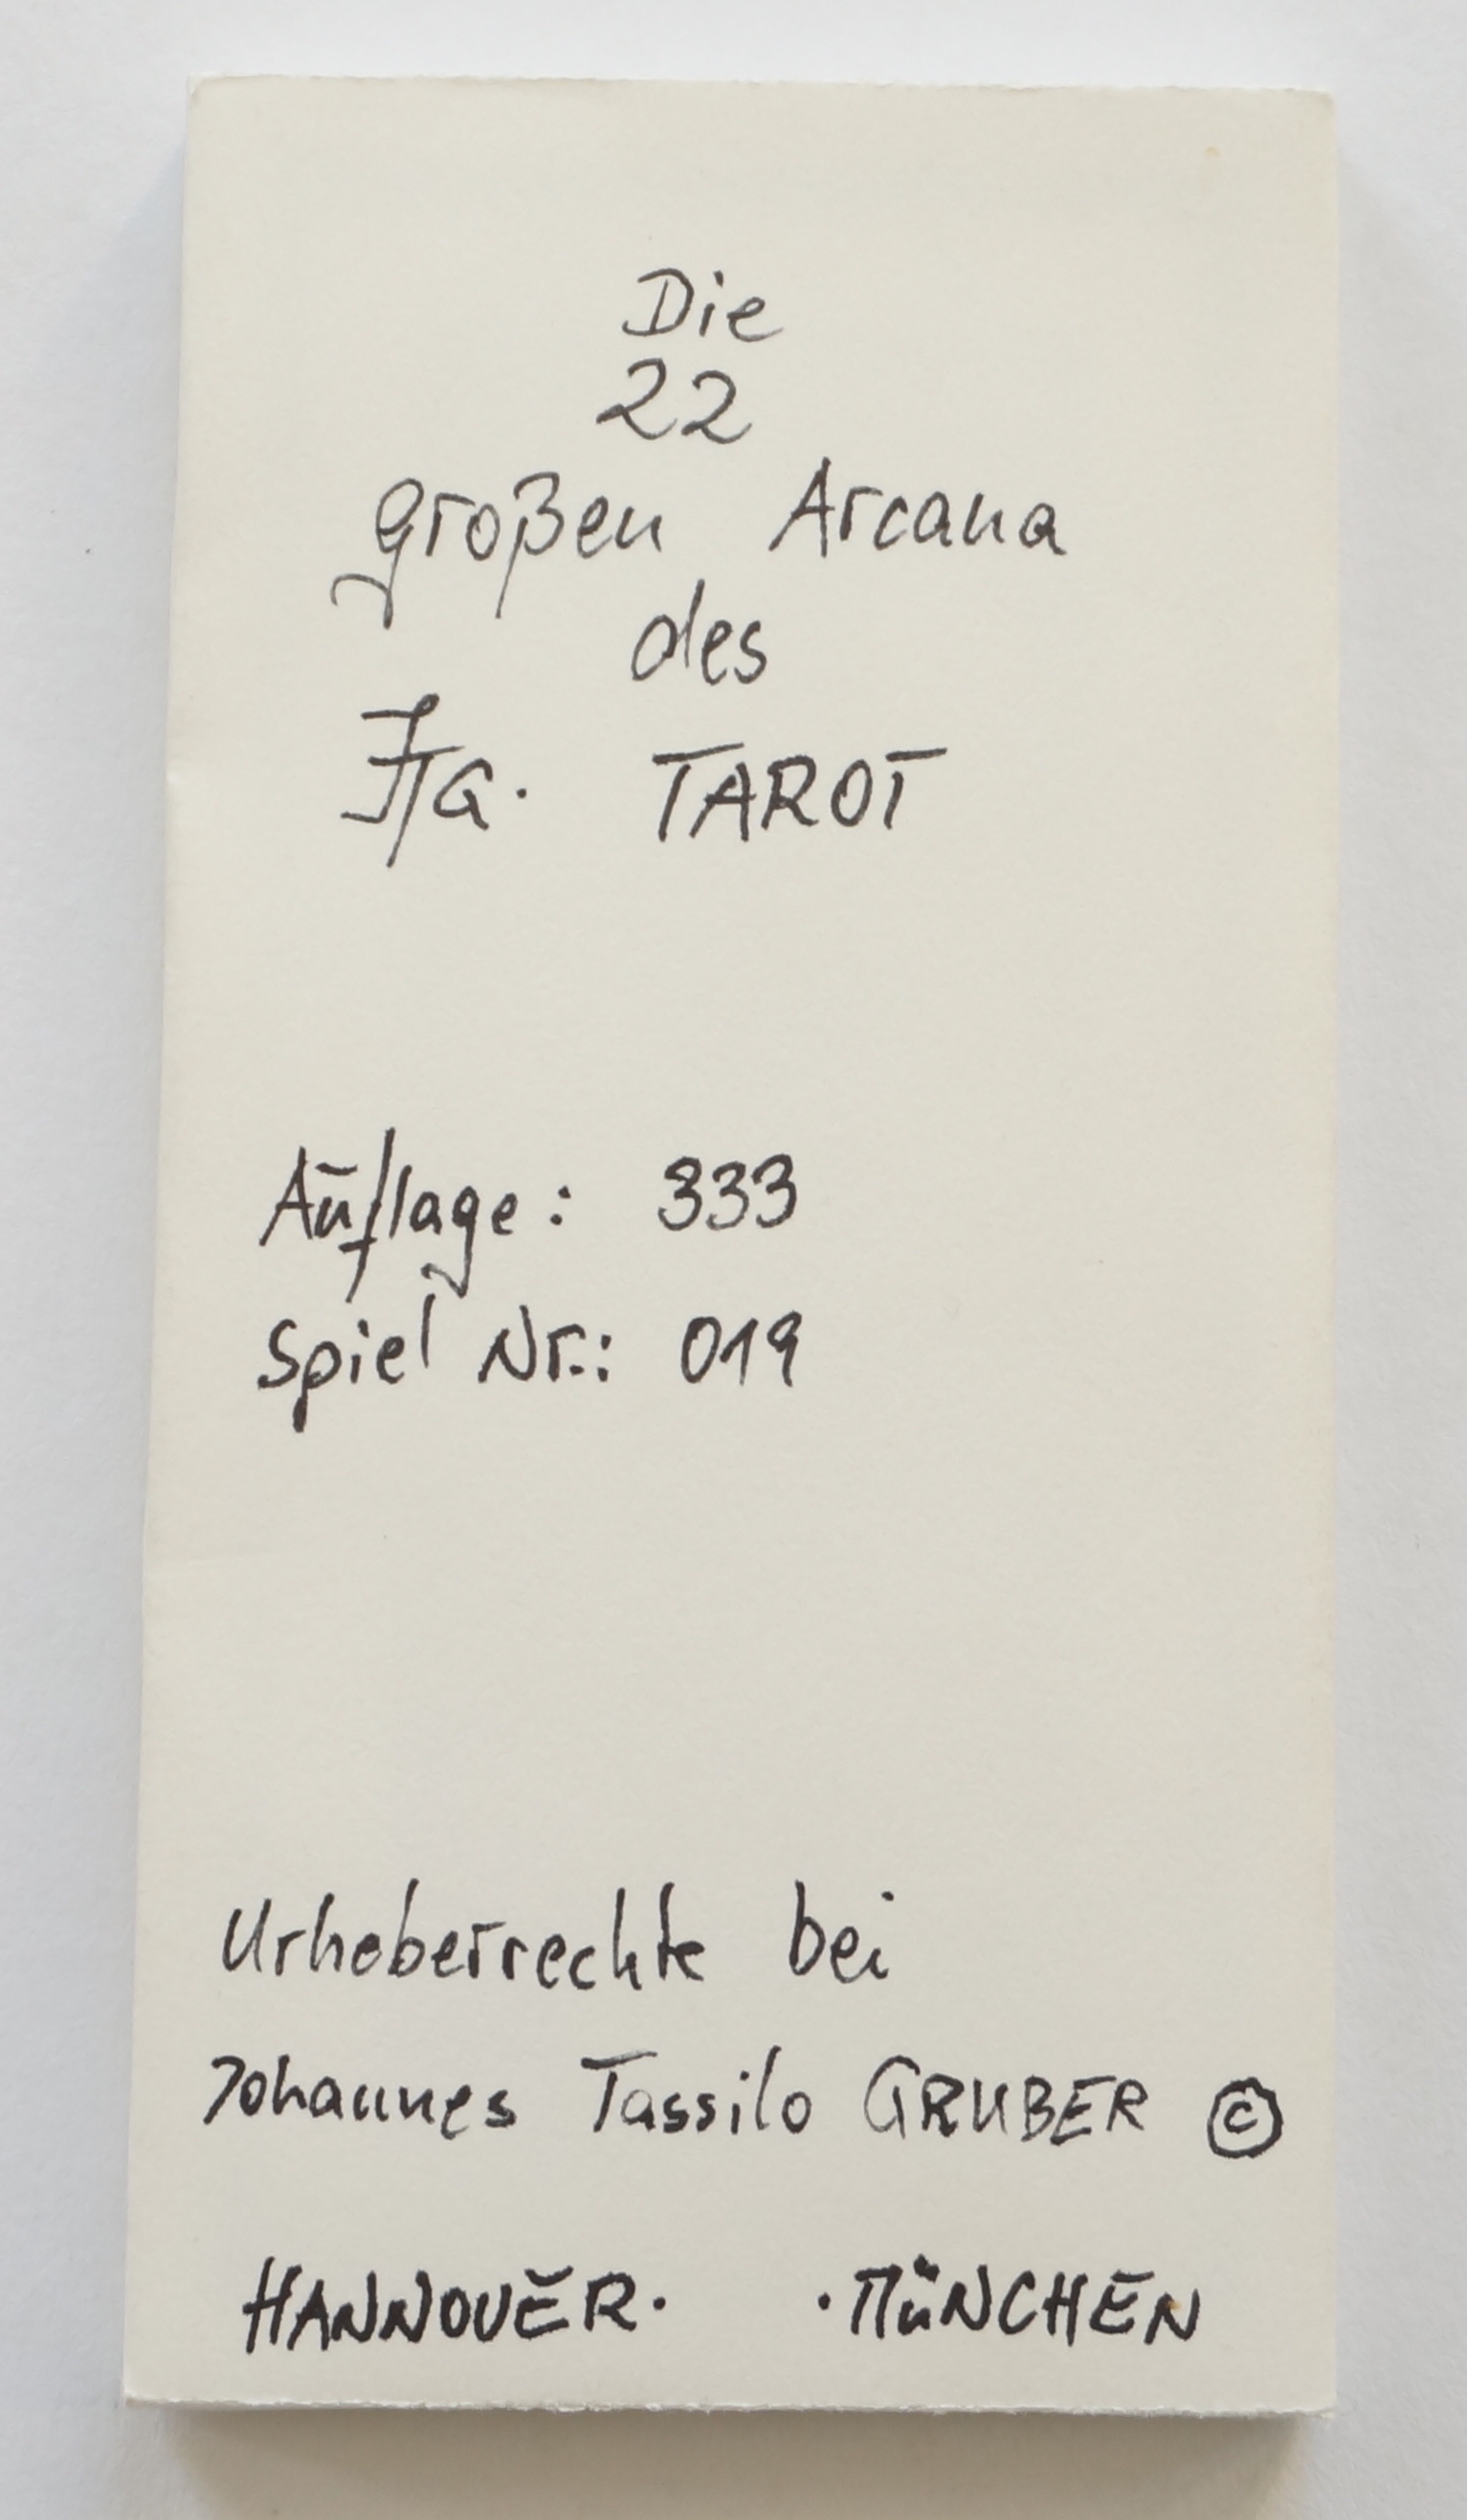 Die
22
großen Arcana
des
JTG. TAROT
Auflage: 333
Spiel Nr.: 019
Urheberrechte bei
Johannes Tassilo GRUBER ©
HANNOVER. · MÜNCHEN